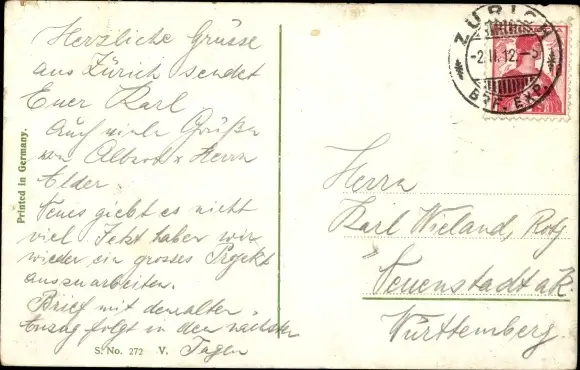 Herzliche Grüsse
aus Zürich sendet
Euer Karl
Auch viele Grüße
von Herrn
Neues giebt es nicht
viel Jetzt haben wir
wieder ein grosses Projekt
auszuarbeiten.
Brief mit
Anzug folgt in den nächsten
Tagen
S. No. 272 V.
Printed in Germany.
ZÜRICH
-2.II.12.-5
BRF. EXP.
Herrn
Karl Wieland,
Neuenstadt a/K.
Württemberg.